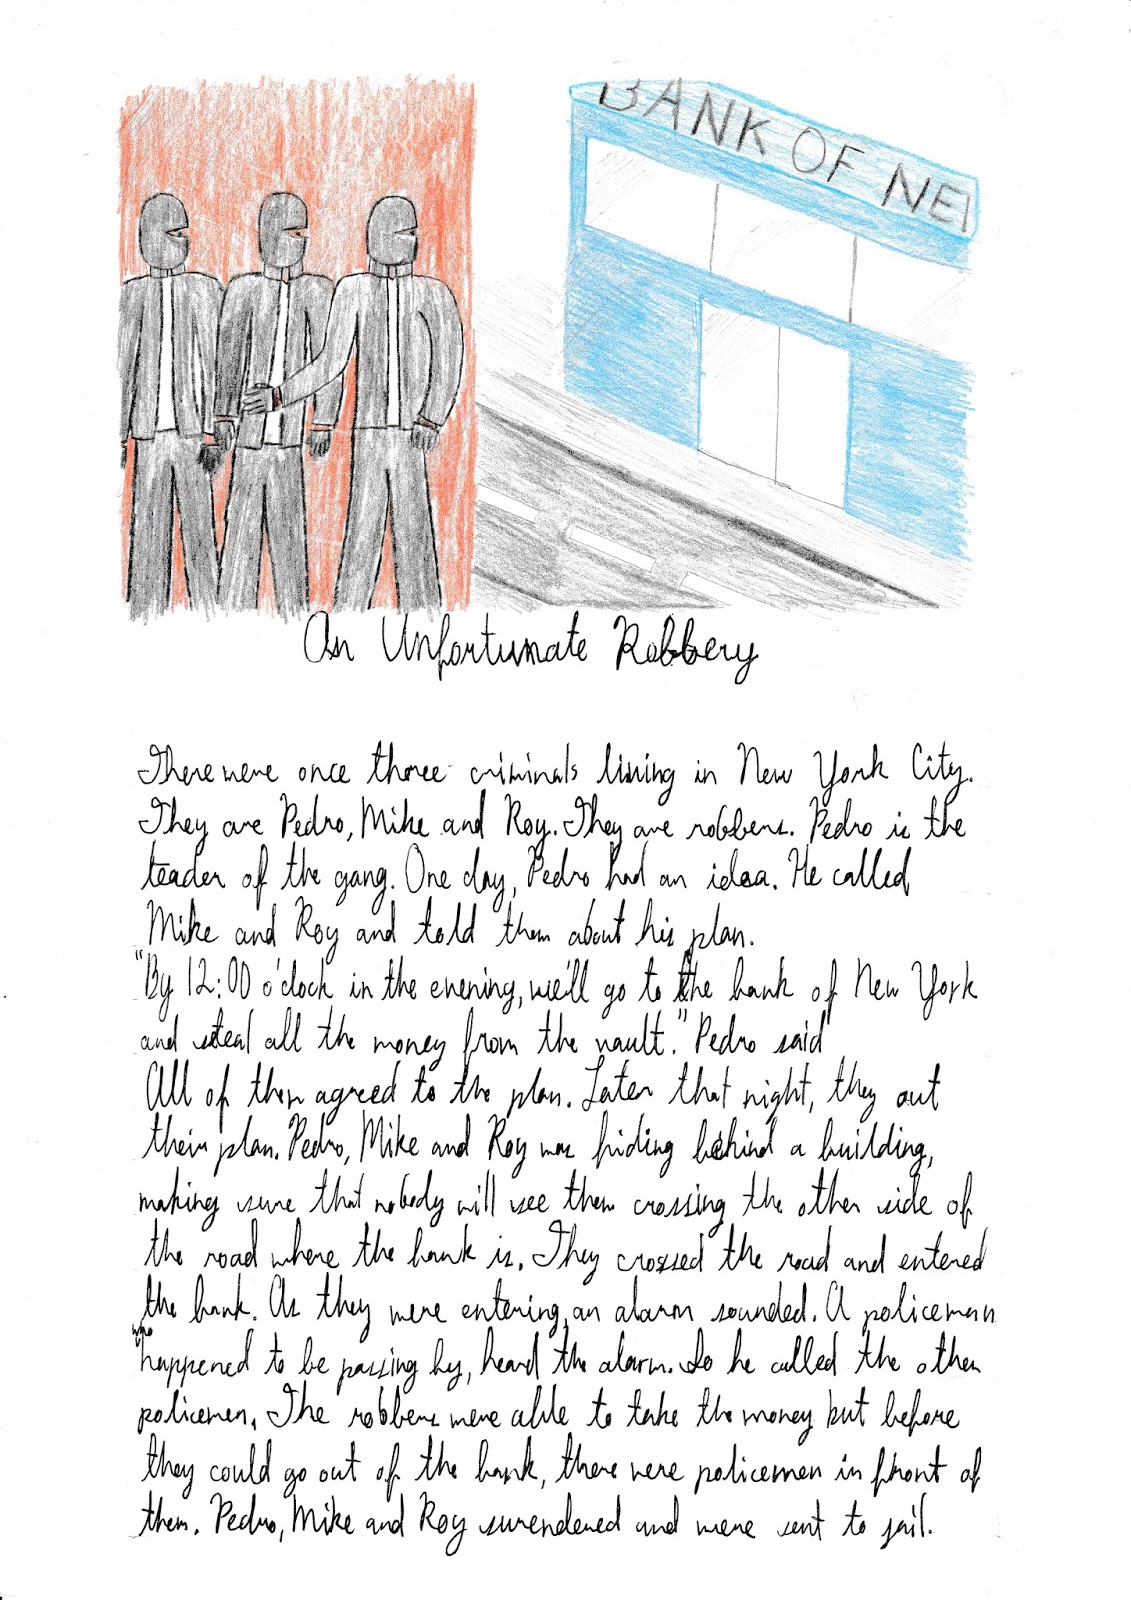 BANK OF NEI
An Unfortunate Robbery
There were once three criminals living in New York City.
They are Pedro, Mike and Roy. They are robbers. Pedro is the
leader of the gang. One day, Pedro had an idea. He called
Mike and Roy and told them about his plan.
"By 12:00 o'clock in the evening, we'll go to the bank of New York
and steal all the money from the vault." Pedro said
All of them agreed to the plan. Later that night, they out
their plan. Pedro, Mike and Roy was hiding behind a building,
making sure that nobody will see them crossing the other side of
the road where the bank is. They crossed the road and entered
the bank. As they were entering, an alarm sounded. A policeman
who happened to be passing by, heard the alarm. So he called the other
policemen. The robbers were able to take the money but before
they could go out of the bank, there were policemen in front of
them. Pedro, Mike and Roy surendered and were sent to jail.